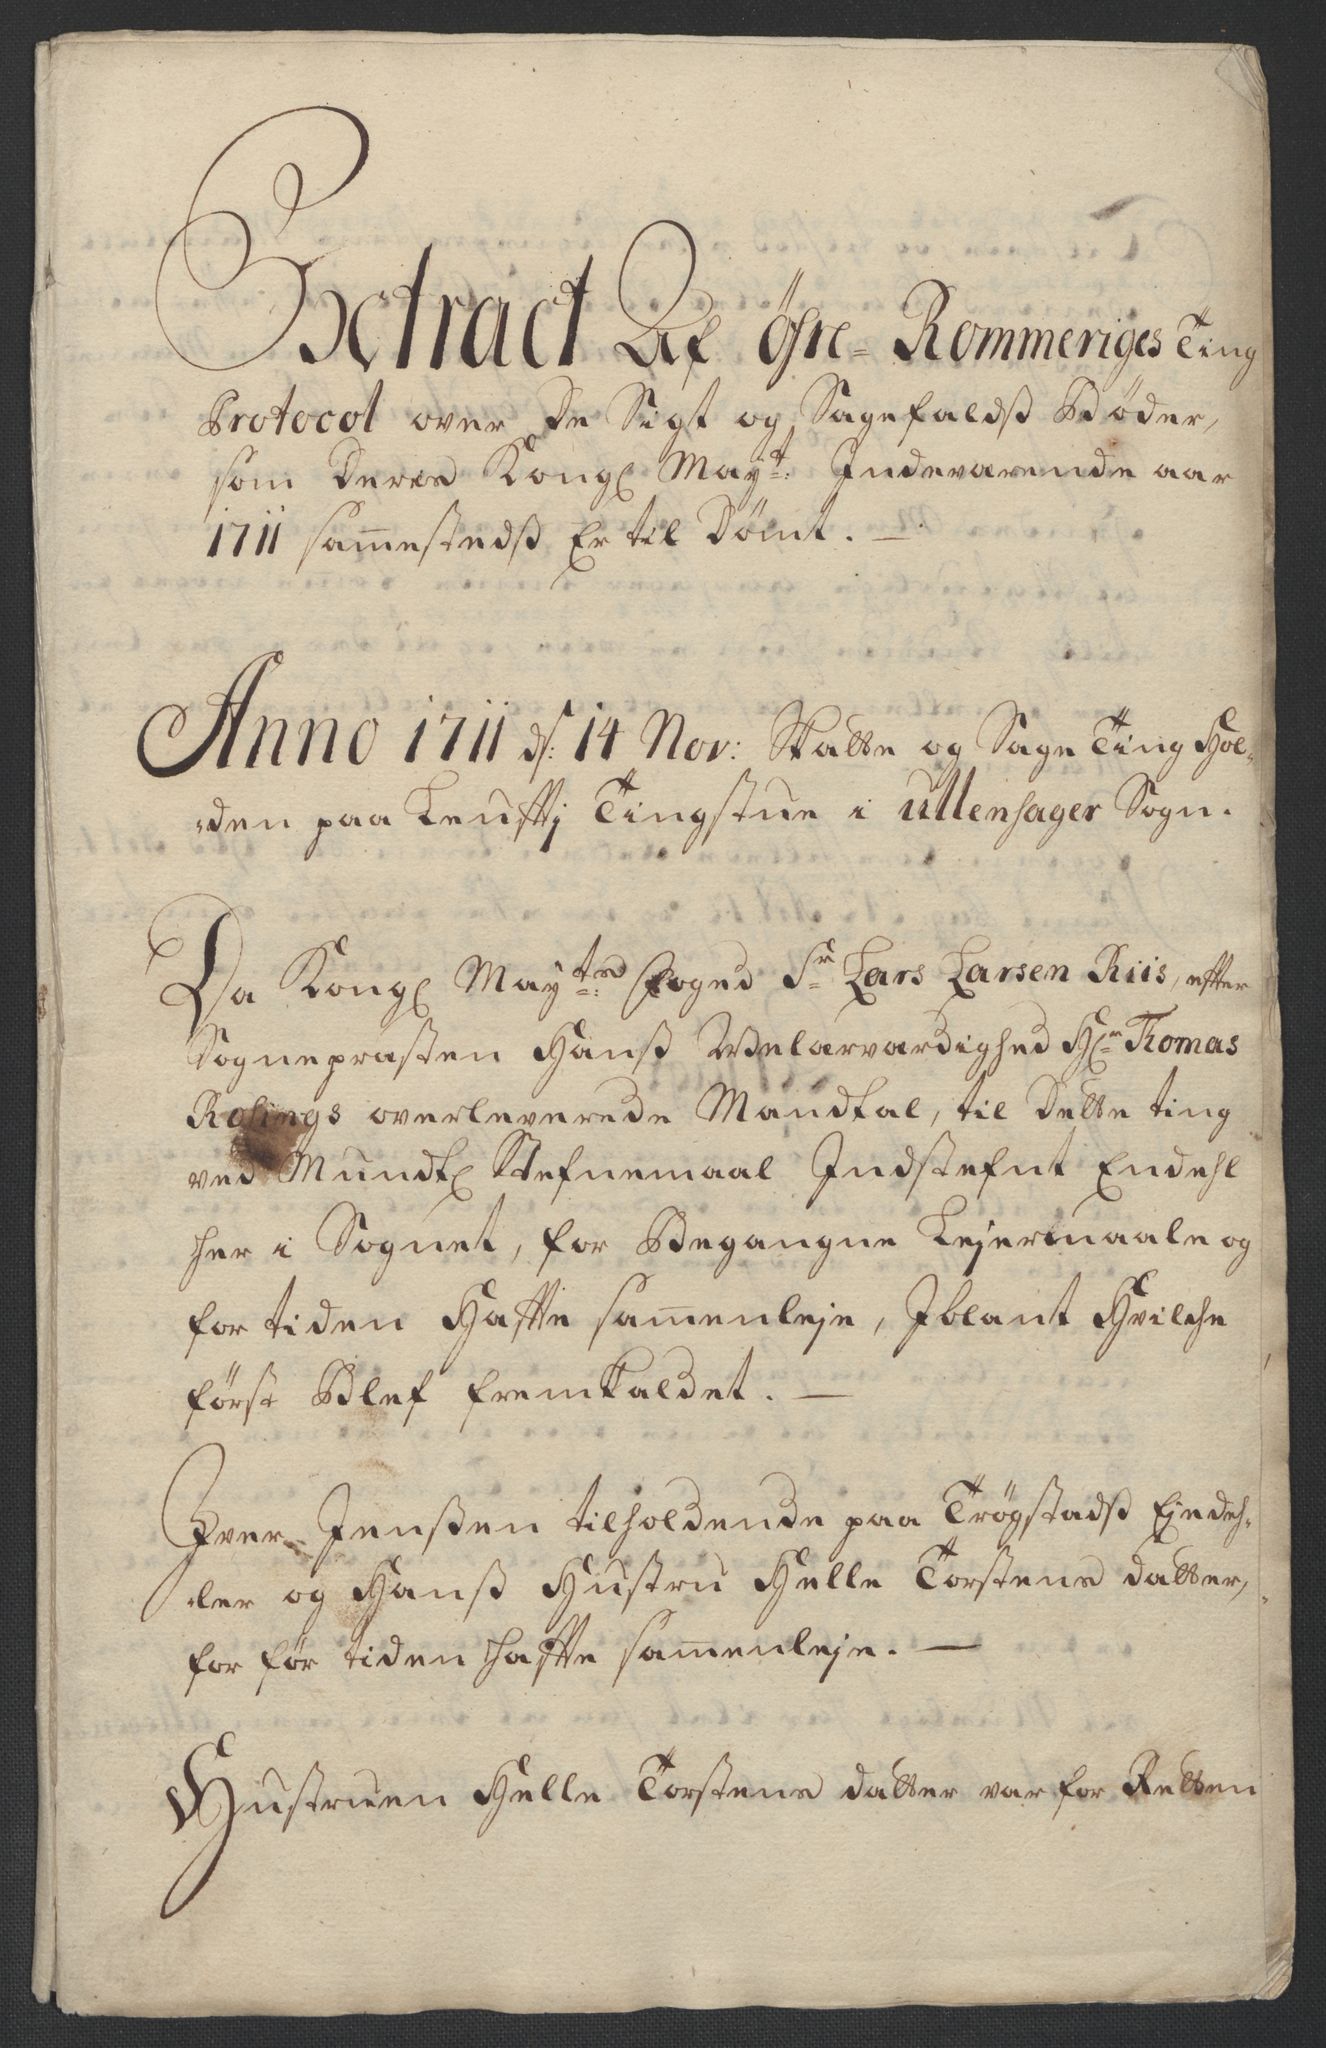 Extract Af Öfre- Rommeriges Ting
Protocol over De Sigt og Sagefaldsß Bøder,
som Deres Kongl Mayt: Indeværende aar
1711 sam̅estedß Er til Dömt. —
Anno 1711 d: 14 Nov: Skatte og Sage Ting Hol-
den paa Tingstue i Ullensager Sogn.
Da Kongl Mayts: foged Sr Lars Larsen Riis, efter
Sognepræsten Hanß Welærværdighed Hr Thomas
Rosings overleverede Mandtal, til Dette ting
ved Mundtl Stefnemaal Indstefnt Endehl
her i Sognet, for Begangne Lejermaale og
for tiden Hafte sam̅enleje, Iblant Hvilche
först Blef fremkaldet. —
Iver Jenßen tilholdende paa Trögstadß Ejedeh-
ler og Hanß Hustru Helle Torstens datter,
for för tiden hafte sam̅enleje. —
Hustruen Helle Torstens datter var for Retten